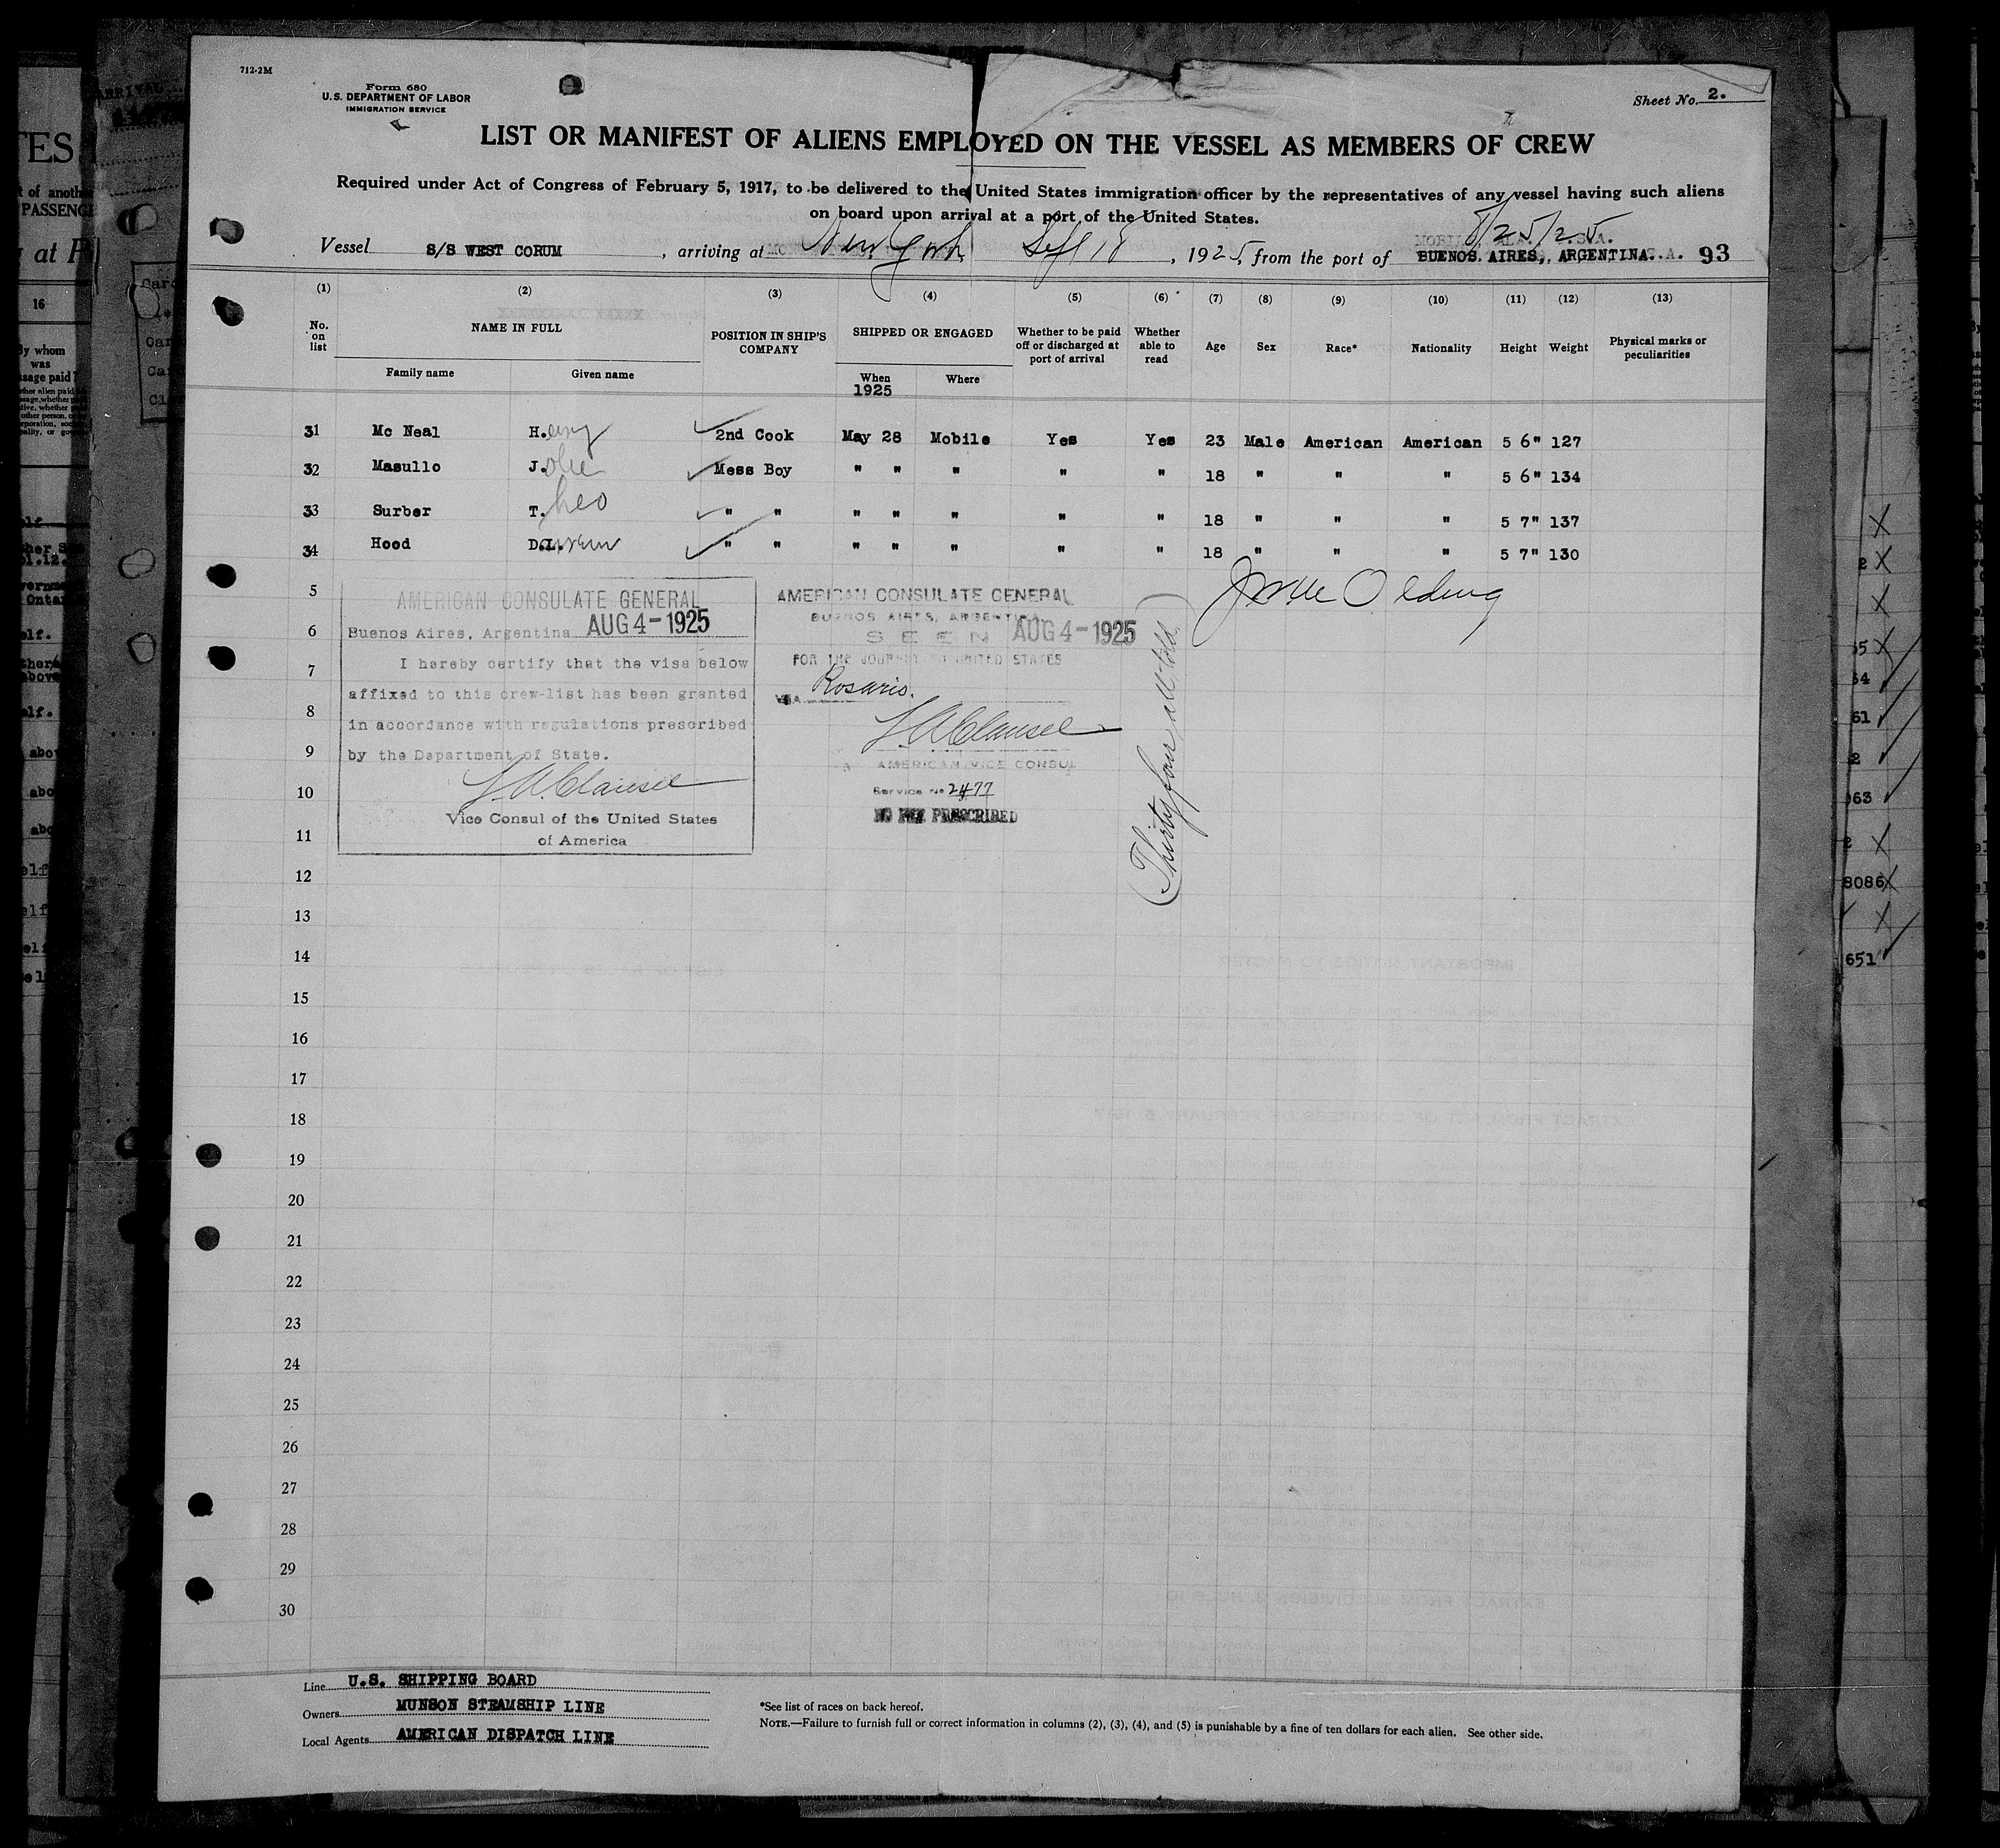 712-2M
Form 680
U.S. DEPARTMENT OF LABOR
IMMIGRATION SERVICE
Sheet No. 2.
LIST OR MANIFEST OF ALIENS EMPLOYED ON THE VESSEL AS MEMBERS OF CREW
Required under Act of Congress of February 5, 1917, to be delivered to the United States immigration officer by the representatives of any vessel having such aliens
on board upon arrival at a port of the United States.
8/25/25
Vessel S/S WEST CORUM, arriving at New York Sept 18, 1925, from the port of BUENOS AIRES, ARGENTINA. 93
(1) (2) (3) (4) (5) (6) (7) (8) (9) (10) (11) (12) (13)
No. on list NAME IN FULL POSITION IN SHIP'S COMPANY SHIPPED OR ENGAGED Whether to be paid off or discharged at port of arrival Whether able to read Age Sex Race* Nationality Height Weight Physical marks or peculiarities
Family name Given name When Where
1925
31 Mc Neal H.enry 2nd Cook May 28 Mobile Yes Yes 23 Male American American 5 6" 127
32 Masullo J. Mess Boy " " " " " 18 " " " 5 6" 134
33 Surber T.heo " " " " " " " 18 " " " 5 7" 137
34 Hood D.L. " " " " " " " 18 " " " 5 7" 130
5
6
7
8
9
10
11
12
13
14
15
16
17
18
19
20
21
22
23
24
25
26
27
28
29
30
AMERICAN CONSULATE GENERAL
Buenos Aires, Argentina AUG 4-1925
I hereby certify that the visa below
affixed to this crew-list has been granted
in accordance with regulations prescribed
by the Department of State.
Vice Consul of the United States
of America
AMERICAN CONSULATE GENERAL
BUENOS AIRES, ARGENTINA
SEEN AUG 4-1925
FOR THE JOURNEY TO UNITED STATES
VIA Rosario.
AMERICAN VICE CONSUL
Service No 2477
NO FEE PRESCRIBED
(Thirtyfour all told)
Line U.S. SHIPPING BOARD
Owners MUNSON STEAMSHIP LINE
Local Agents AMERICAN DISPATCH LINE
*See list of races on back hereof.
NOTE.—Failure to furnish full or correct information in columns (2), (3), (4), and (5) is punishable by a fine of ten dollars for each alien. See other side.